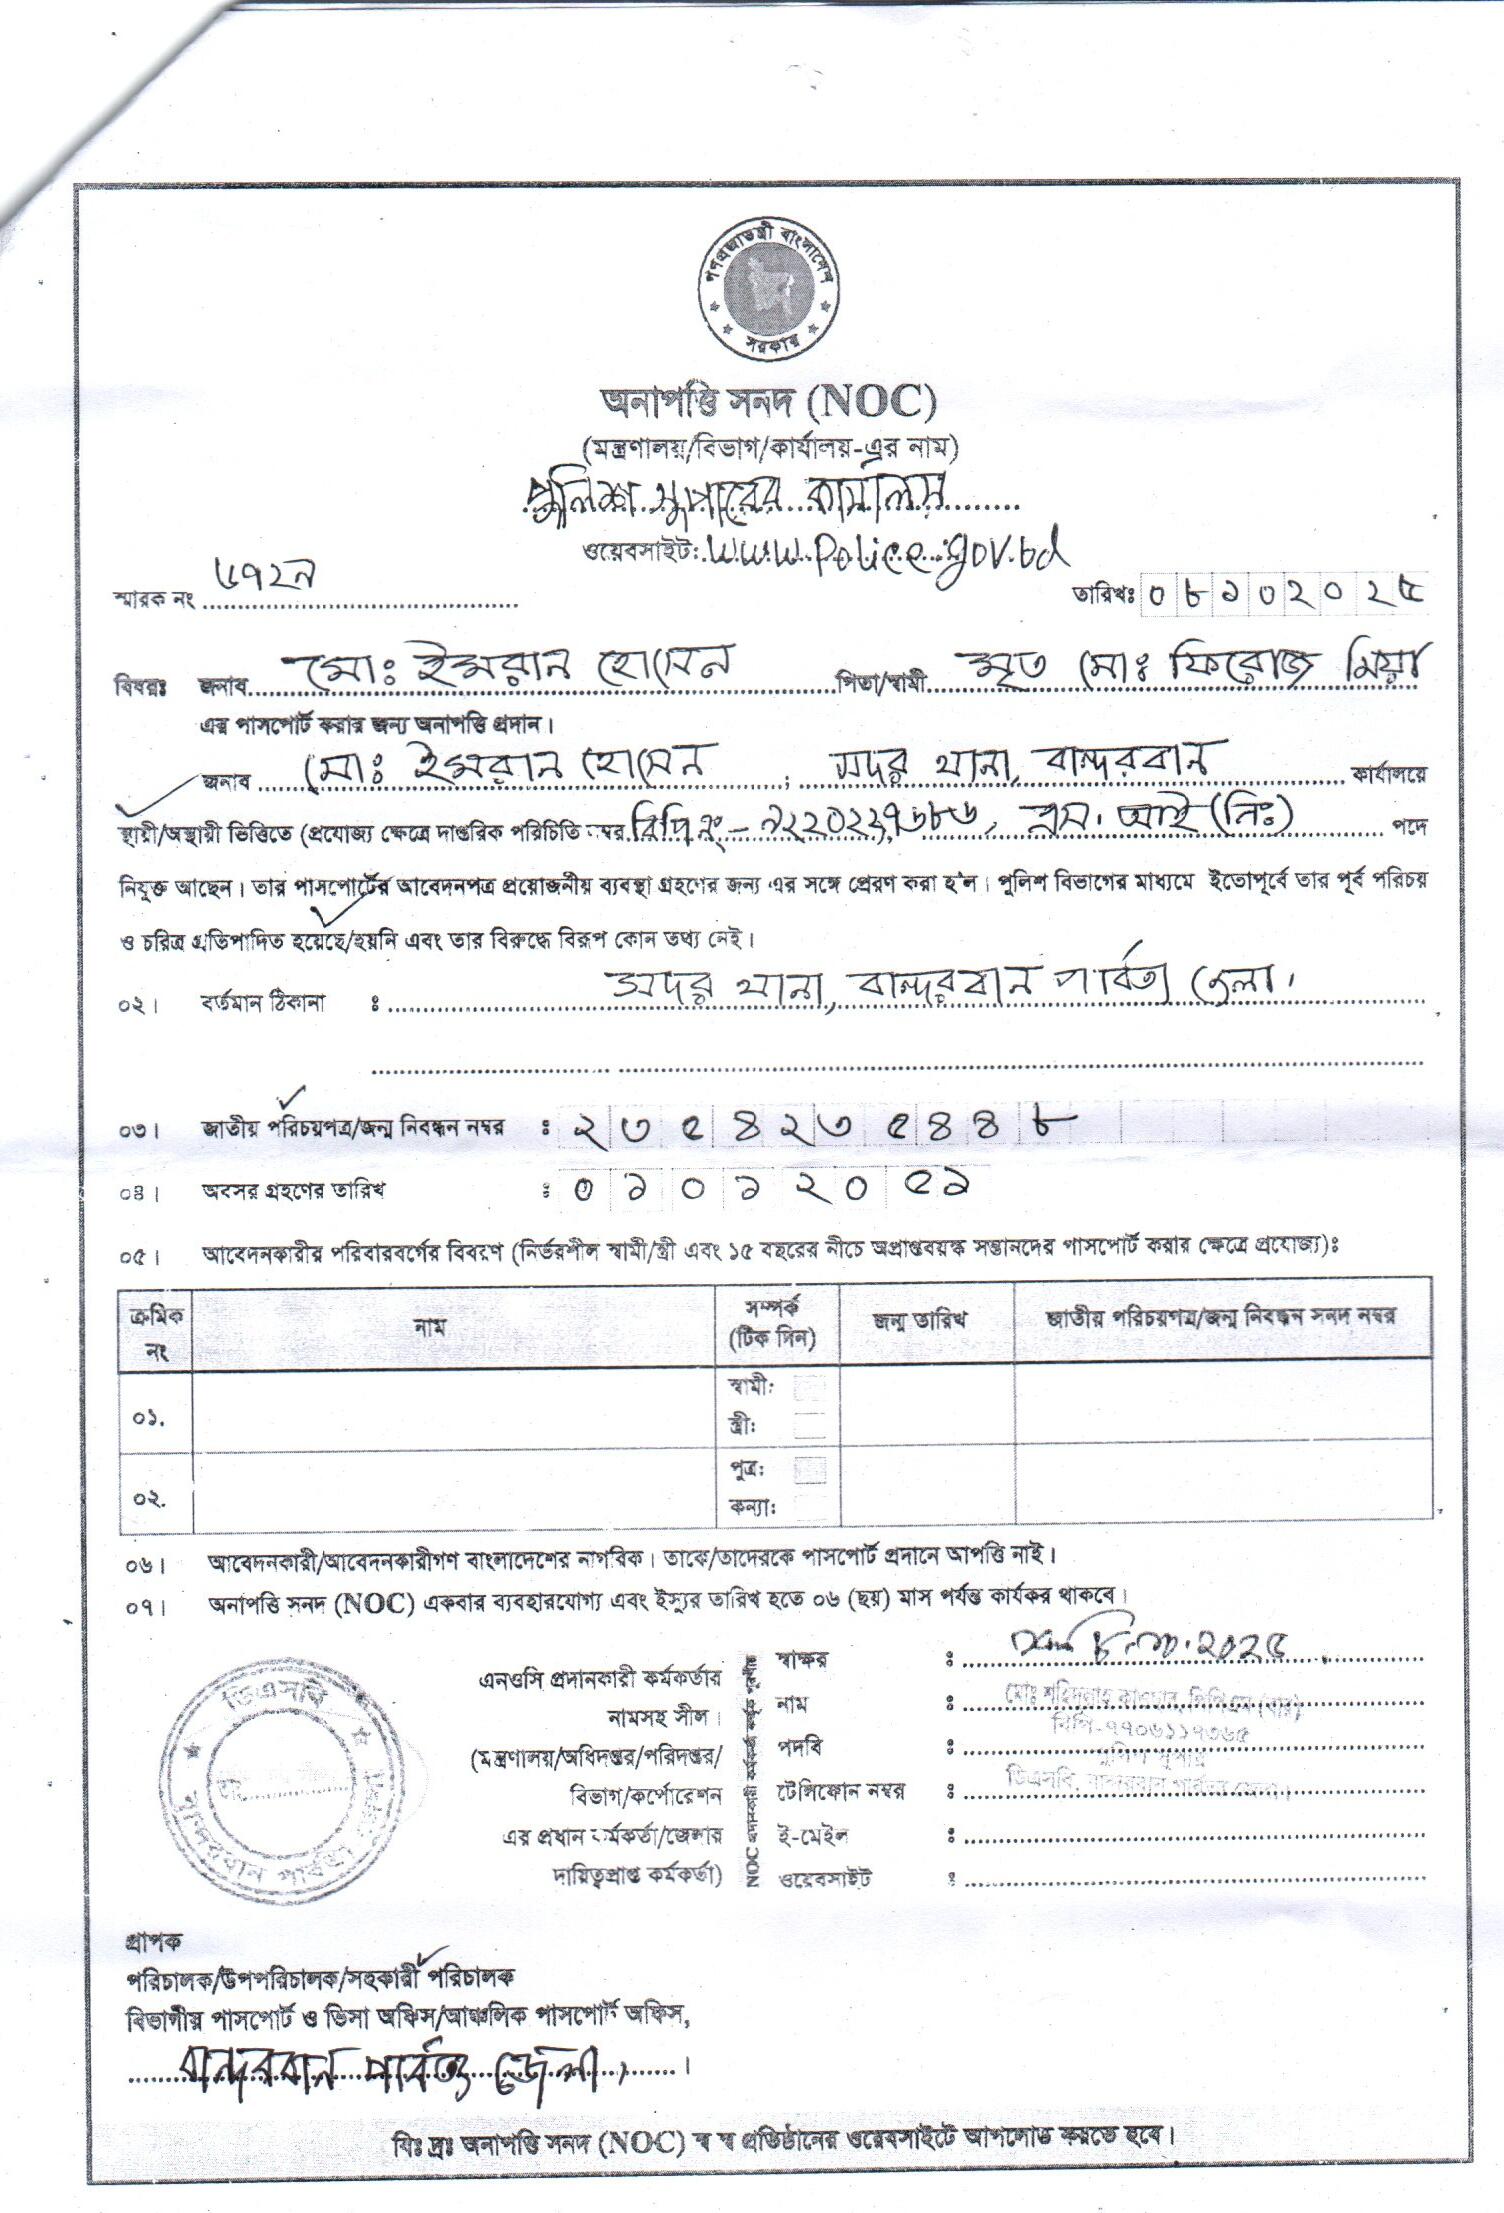 গণপ্রজাতন্ত্রী বাংলাদেশ
সরকার
অনাপত্তি সনদ (NOC)
(মন্ত্রণালয়/বিভাগ/কার্যালয়-এর নাম)
পুলিশ সুপারের কার্যালয়
ওয়েবসাইট: www.police.gov.bd
স্মারক নং তারিখঃ ০৮১০২০২৫
বিষয়ঃ জনাব মোঃ ইমরান হোসেন পিতা/স্বামী মৃত মোঃ ফিরোজ মিয়া
এর পাসপোর্ট করার জন্য অনাপত্তি প্রদান।
জনাব মোঃ ইমরান হোসেন ; সদর থানা, বান্দরবান কার্যালয়ে
স্থায়ী/অস্থায়ী ভিত্তিতে (প্রযোজ্য ক্ষেত্রে দাপ্তরিক পরিচিতি নম্বর বিপি নং- এস. আই (নিঃ) পদে
নিযুক্ত আছেন। তার পাসপোর্টের আবেদনপত্র প্রয়োজনীয় ব্যবস্থা গ্রহণের জন্য এর সঙ্গে প্রেরণ করা হ'ল। পুলিশ বিভাগের মাধ্যমে ইতোপূর্বে তার পূর্ব পরিচয়
ও চরিত্র প্রতিপাদিত হয়েছে/হয়নি এবং তার বিরুদ্ধে বিরূপ কোন তথ্য নেই।
০২। বর্তমান ঠিকানা ঃ সদর থানা, বান্দরবান পার্বত্য জেলা।
০৩। জাতীয় পরিচয়পত্র/জন্ম নিবন্ধন নম্বর ঃ ২৩৫৪২৩৫৪৪৮
০৪। অবসর গ্রহণের তারিখ ঃ ০১০১২০৫১
০৫। আবেদনকারীর পরিবারবর্গের বিবরণ (নির্ভরশীল স্বামী/স্ত্রী এবং ১৫ বছরের নীচে অপ্রাপ্তবয়স্ক সন্তানদের পাসপোর্ট করার ক্ষেত্রে প্রযোজ্য)ঃ
ক্রমিক নং নাম সম্পর্ক (টিক দিন) জন্ম তারিখ জাতীয় পরিচয়পত্র/জন্ম নিবন্ধন সনদ নম্বর
০১. স্বামী:
স্ত্রী:
০২. পুত্র:
কন্যা:
০৬। আবেদনকারী/আবেদনকারীগণ বাংলাদেশের নাগরিক। তাকে/তাদেরকে পাসপোর্ট প্রদানে আপত্তি নাই।
০৭। অনাপত্তি সনদ (NOC) একবার ব্যবহারযোগ্য এবং ইস্যুর তারিখ হতে ০৬ (ছয়) মাস পর্যন্ত কার্যকর থাকবে।
এনওসি প্রদানকারী কর্মকর্তার
নামসহ সীল।
(মন্ত্রণালয়/অধিদপ্তর/পরিদপ্তর/
বিভাগ/কর্পোরেশন
এর প্রধান কর্মকর্তা/জেলার
দায়িত্বপ্রাপ্ত কর্মকর্তা)
স্বাক্ষর ঃ ২০২৫
নাম ঃ
বিপি-৭৭০৬১১৭৩৬৫
পদবি ঃ পুলিশ সুপার
ডিএসবি, বান্দরবান পার্বত্য জেলা।
টেলিফোন নম্বর ঃ
ই-মেইল ঃ
ওয়েবসাইট ঃ
ডিএসবি
বান্দরবান পার্বত্য জেলা
প্রাপক
পরিচালক/উপপরিচালক/সহকারী পরিচালক
বিভাগীয় পাসপোর্ট ও ভিসা অফিস/আঞ্চলিক পাসপোর্ট অফিস,
বান্দরবান পার্বত্য জেলা।
বিঃ দ্রঃ অনাপত্তি সনদ (NOC) স্ব স্ব প্রতিষ্ঠানের ওয়েবসাইটে আপলোড করতে হবে।